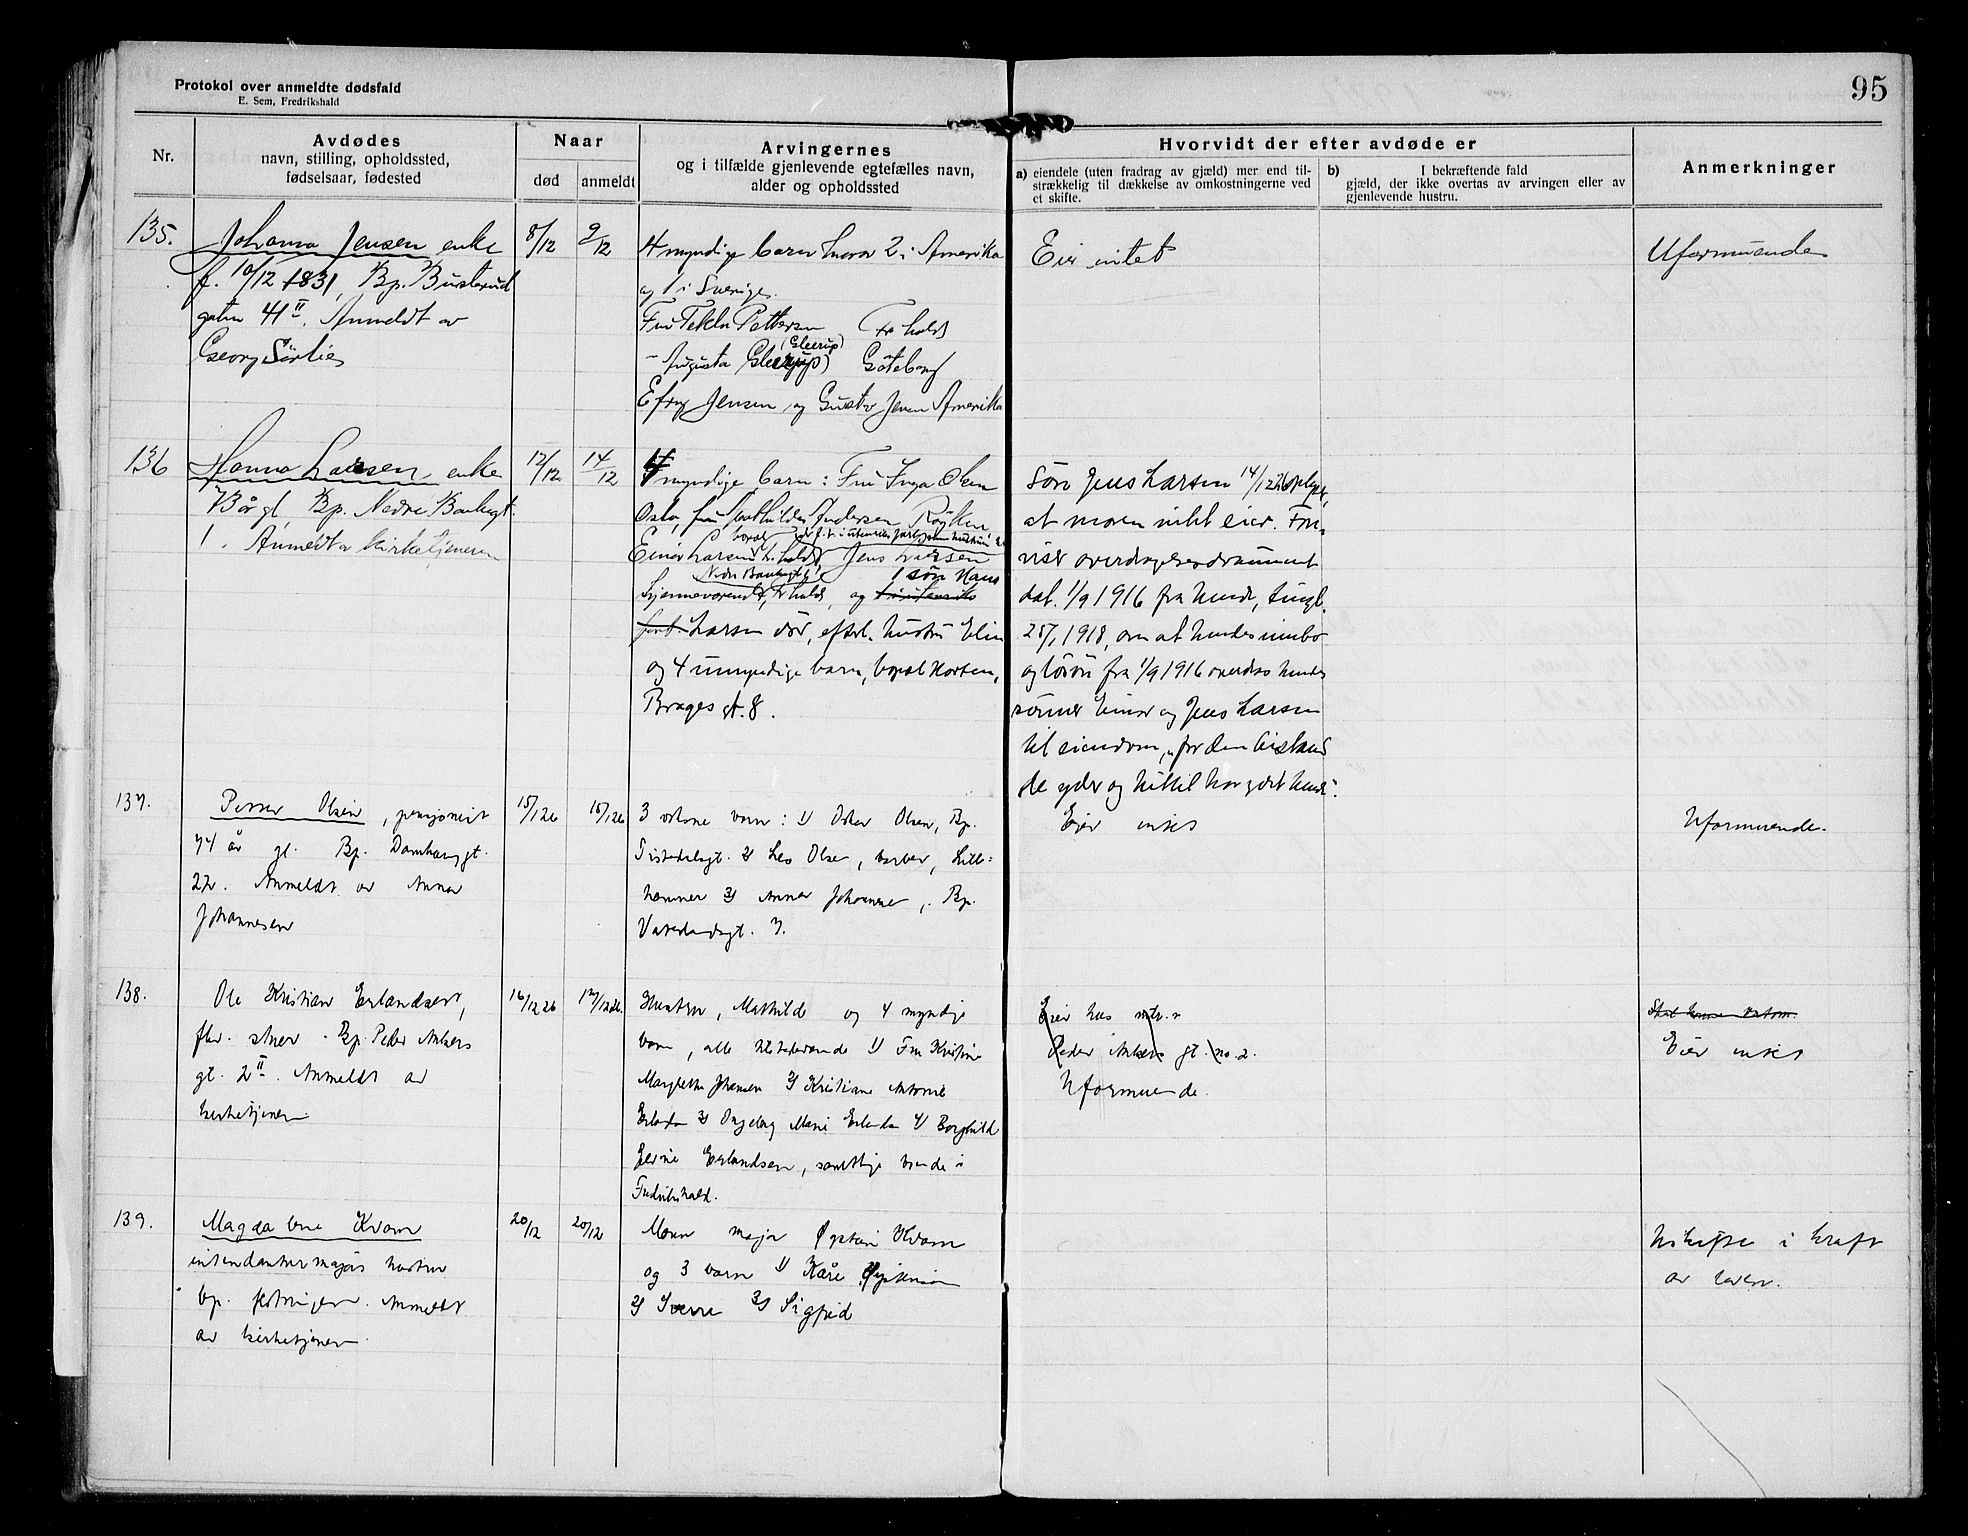 Protokol over anmeldte dødsfald
E. Sem, Fredrikshald
95
Nr.
Avdødes
navn, stilling, opholdssted,
fødselsaar, fødested
Naar
død
anmeldt
Arvingernes
og i tilfælde gjenlevende egtefælles navn,
alder og opholdssted
Hvorvidt der efter avdøde er
a) eiendele (uten fradrag av gjæld) mer end til-
strækkelig til dækkelse av omkostningerne ved
et skifte.
b) I bekræftende fald
gjæld, der ikke overtas av arvingen eller av
gjenlevende hustru.
Anmerkninger
135.
Johanna Jensen enke
f. 10/12 1831, Bp. Busterud
gaten 41 II. Anmeldt av
Georg Sørlie
8/12
9/12
4 myndige barn hvorav 2 i Amerika
og 1 i Sverige.
Fru Tekla Pettersen Fr.hald
(Gleerup)
- Augusta Gleerup Göteborg
Jensen og Gustav Jensen Amerika
Eier intet
Uformuende
136
Hanna Larsen, enke
år gl, Bp. Nedre Bankegt.
1. Anmeldt av kirketjeneren
12/12
14/12
4 myndige barn: Fru Inga Olsen
Oslo, fru Mathilde Andersen Røyken
Einar Larsen Fr.hald, Jens Larsen
Nedre Bankegt 1
1 søn Hans
hjemmeværende, Fr.hald, og
Larsen død, efterl. hustru Elin
og 4 umyndige barn, bopæl Horten,
Brages gt. 8.
Søn Jens Larsen 14/12 26 oplyser,
at moren intet eier. Fore-
viser overdragelsesdokument
dat. 1/9 1916 fra hende, tingl.
1918, om at hendes innbo
og løsøre fra 1/9 1916 overdras hendes
sønner Einar og Jens Larsen
til eiendom, "for den bistand
de yder og hittil har ydet hende".
137.
Olsen, pensjonist
74 år gl. Bp. Damhaugt.
22. Anmeldt av Anna
Johannesen
15/12 26
15/12 26
3 voksne barn: 1) Oskar Olsen, Bp.
Tistedalsgt. 2) Leo Olsen, barber, Lille-
hammer 3) Anna Johannesen, Bp.
Vaterlandsgt. 7.
Eier intet
Uformuende.
138.
Ole Kristian Erlandsen,
fhv. Bp. Peder Ankers
gt. 2 II. Anmeldt av
kirketjener
16/12 26
17/12 26.
Hustru, Mathilde og 4 myndige
barn, alle tilstedeværende 1) Fru Kristine
Margrethe Johansen 2) Kristian Antonie
Erlandsen 3) Ingeborg Marie Erlandsen 4) Borghild
Erlandsen, samtlige boende i
Fredrikshald.
Eier hus matr. n
Peder Ankers gt. no. 2.
Uformuende.
Eier intet
139.
Magdalene Kvam
intendanturmajors hustru
bp. festningen. Anmeldt
av kirketjener.
20/12
20/12
Mann major Øystein Kvam
og 3 barn 1) Kåre Øystein
2) Sverre 3) Sigfrid
Uskifte i kraft
av loven.